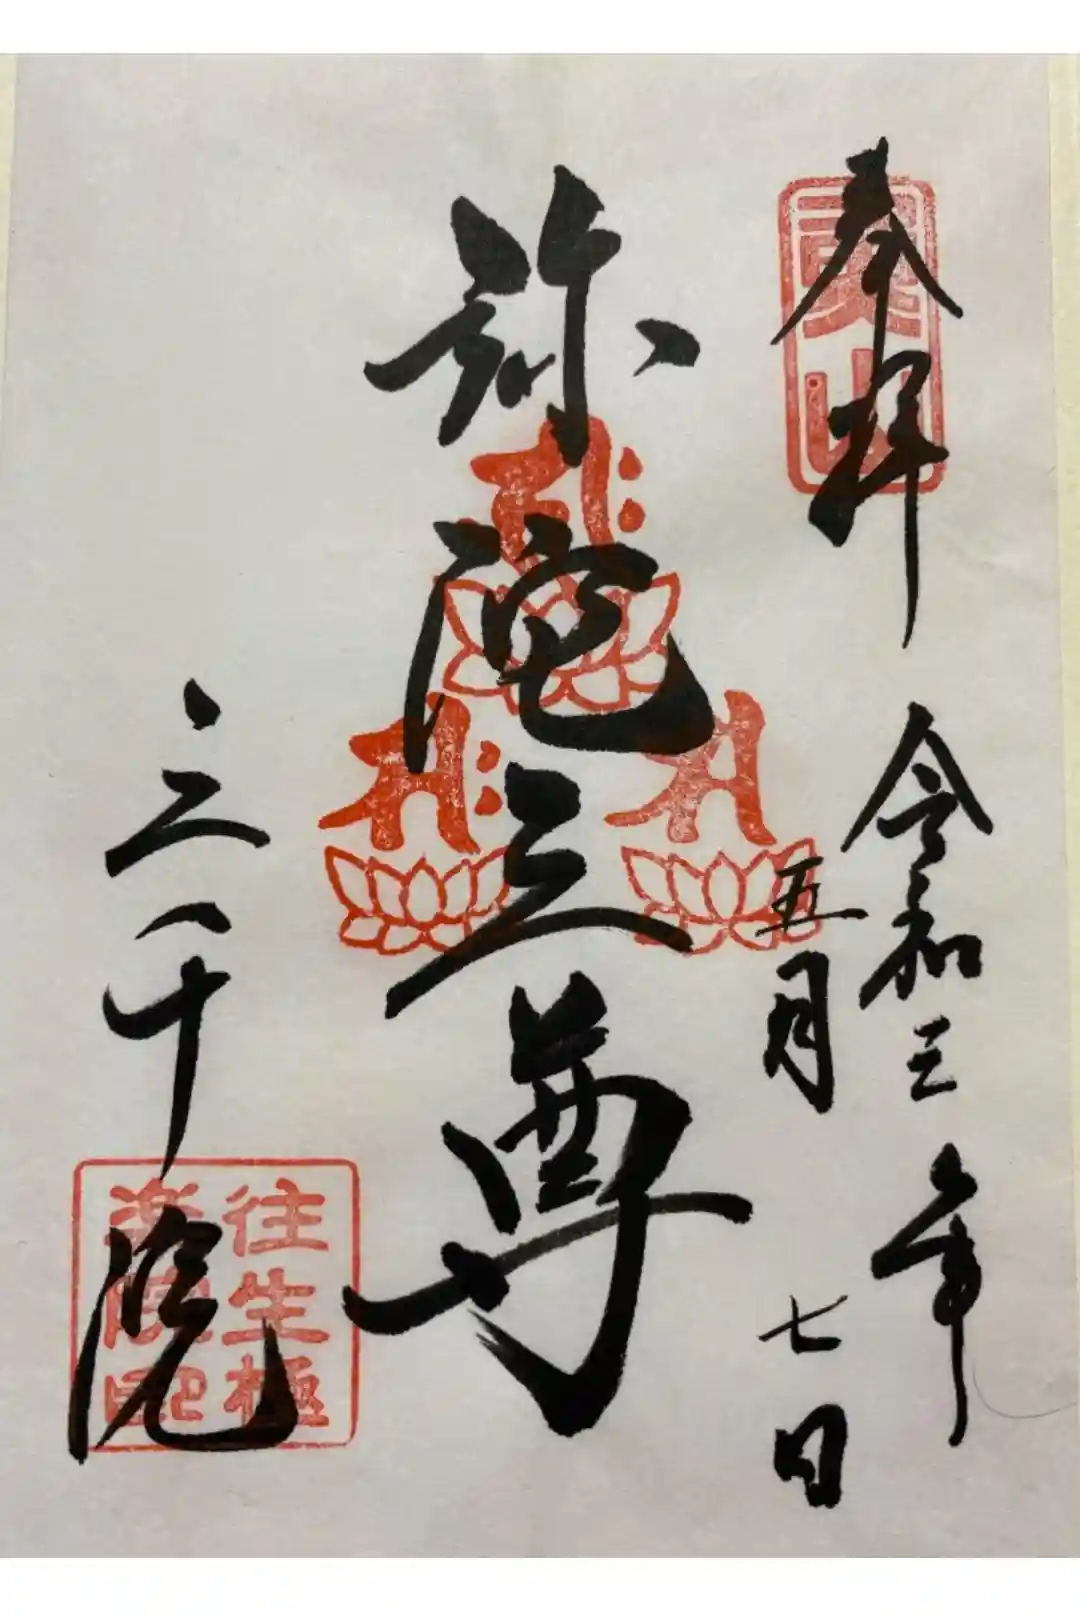 奉拝
令和三年
五月七日
弥陀三尊
三千院
往生極
楽院印